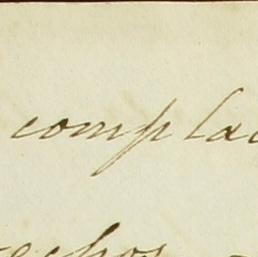 complac
echos